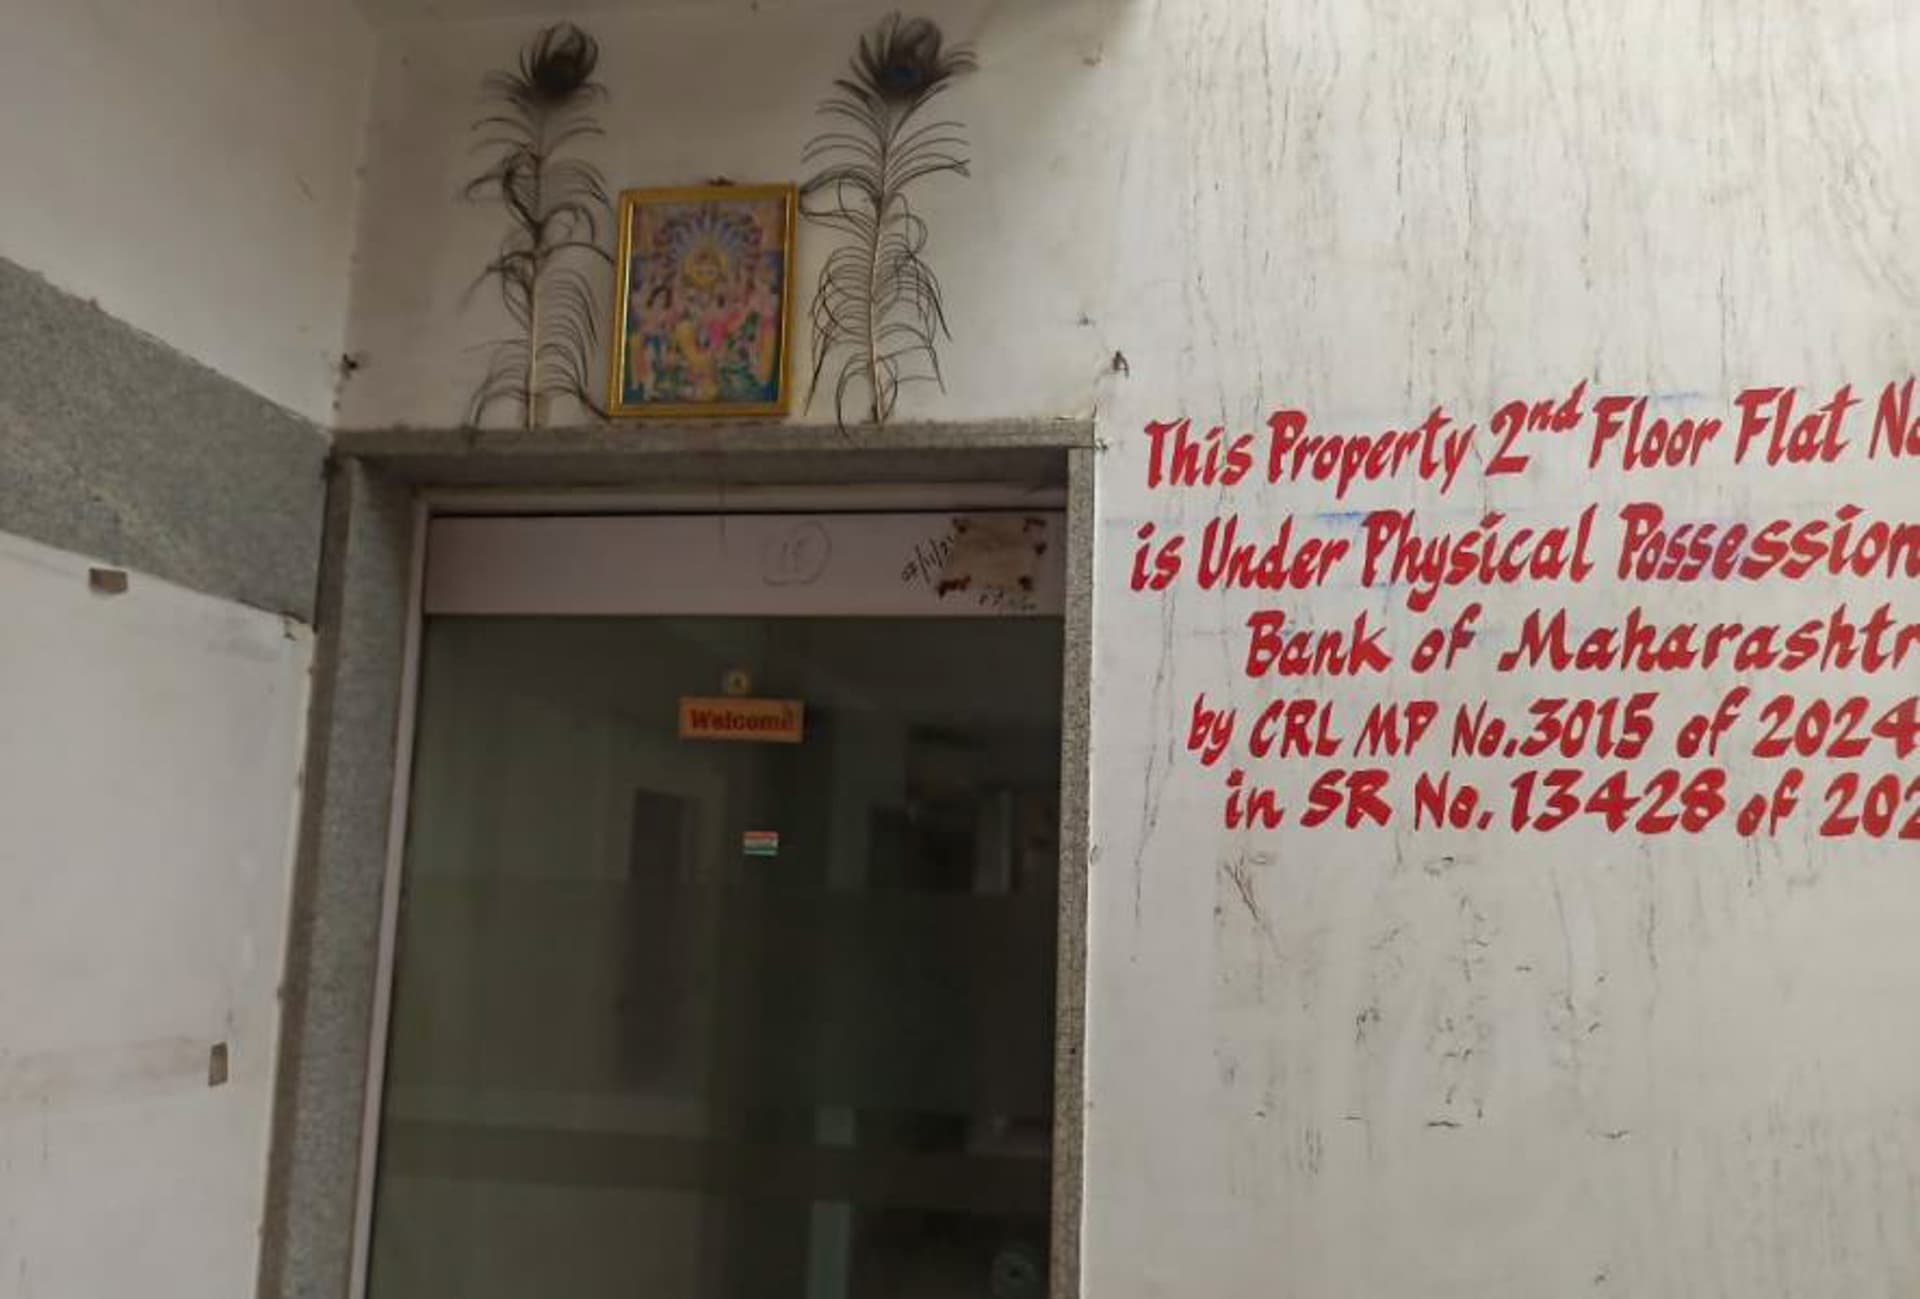 This Property 2nd Floor Flat No
is Under Physical Possession
Bank of Maharashtr
by CRL MP No.3015 of 2024
in SR No. 13428 of 202
Welcome